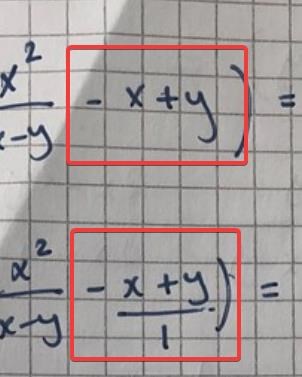 x²/(x-y) - x+y) =
x²/(x-y) - (x+y)/1) =